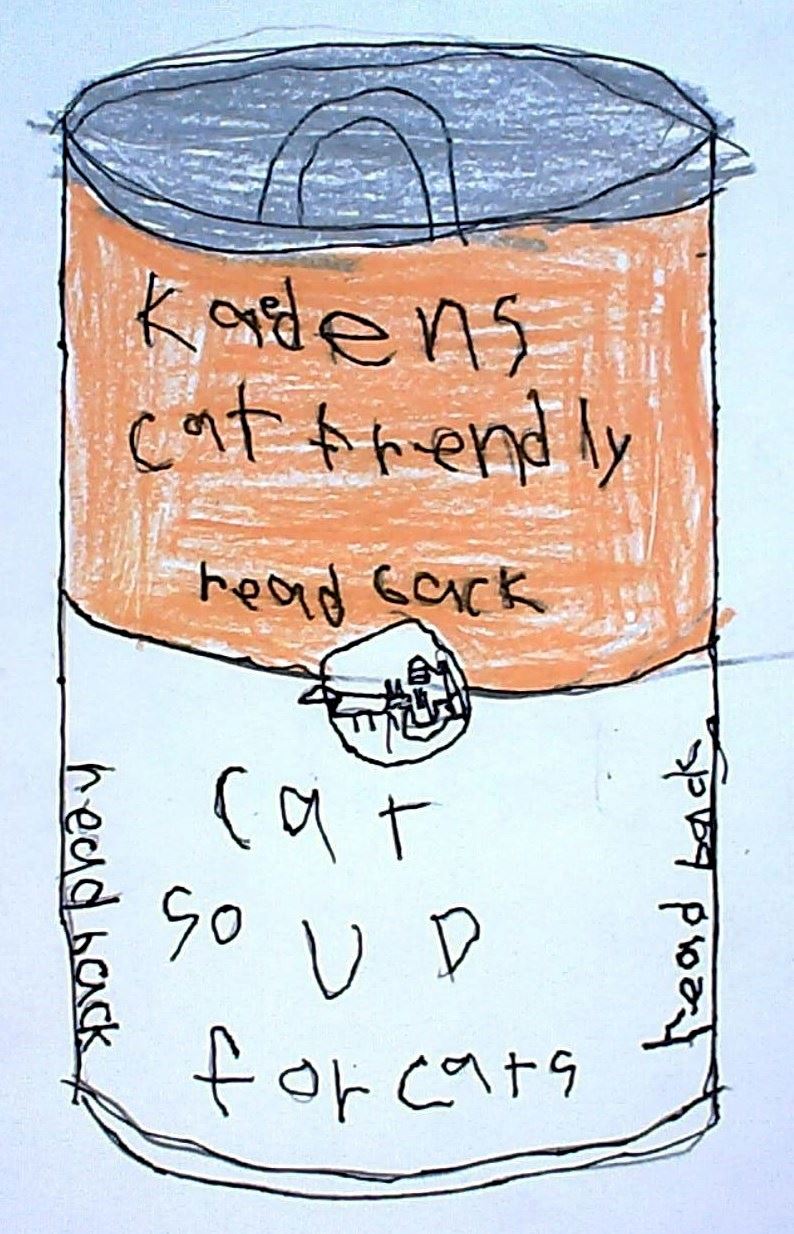 Kadens
cat friendly
read back
cat
soup
for cats
read back
read back